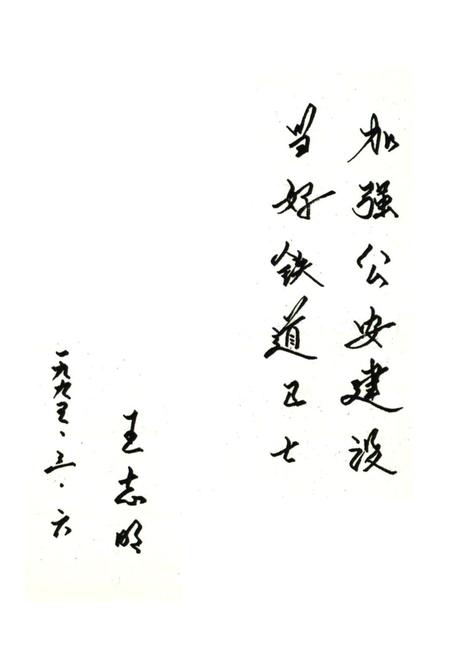 加强公安建设
当好铁道卫士
王志明
一九九五、三·六